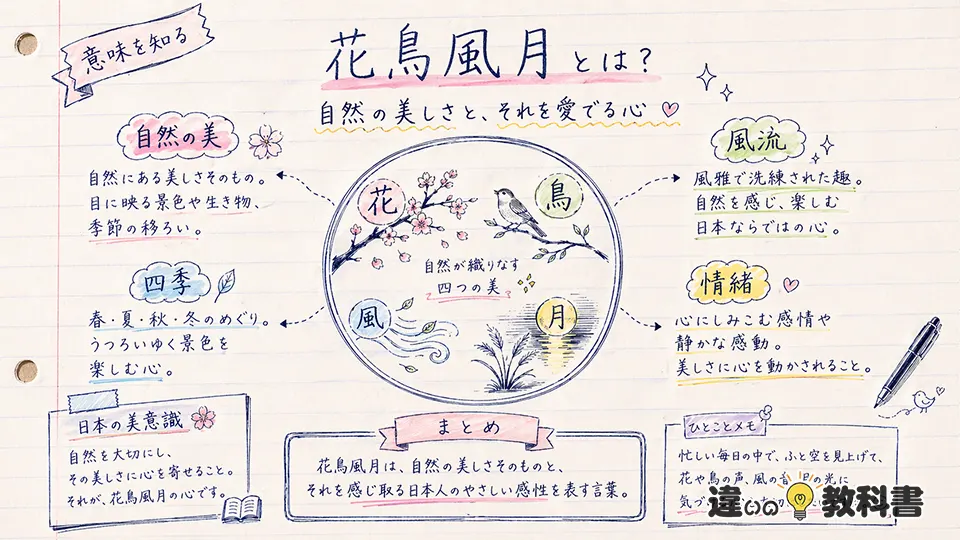 意味を知る
花鳥風月とは?
自然の美しさと、それを愛でる心
自然の美
自然にある美しさそのもの。
目に映る景色や生き物、
季節の移ろい。
四季
春・夏・秋・冬のめぐり。
うつろいゆく景色を
楽しむ心。
花
鳥
自然が織りなす
四つの美
風
月
風流
風雅で洗練された趣。
自然を感じ、楽しむ
日本ならではの心。
情緒
心にしみこむ感情や
静かな感動。
美しさに心を動かされること。
日本の美意識
自然を大切にし、
その美しさに心を寄せること。
それが、花鳥風月の心です。
まとめ
花鳥風月は、自然の美しさそのものと、
それを感じ取る日本人のやさしい感性を表す言葉。
ひとことメモ
忙しい毎日の中で、ふと空を見上げて、
花や鳥の声、風の音 の光に
気づ
違いの教科書